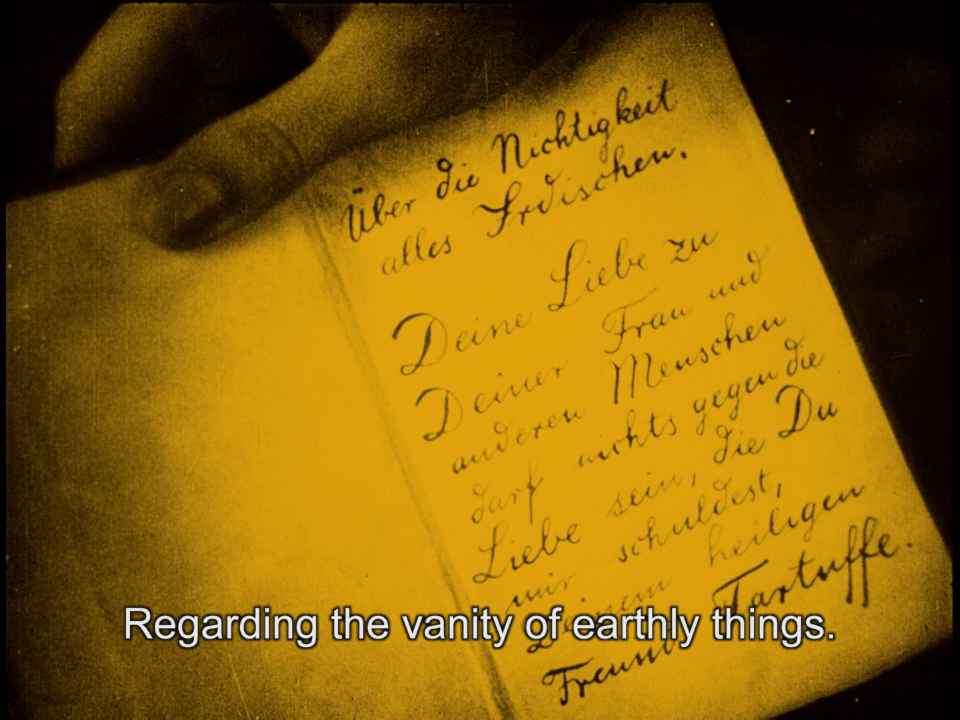 Über die Nichtigkeit
alles Irdischen.
Deine Liebe zu
Deiner Frau und
anderen Menschen
darf nichts gegen die
Liebe sein, die Du
mir schuldest,
Deinem heiligen
Freund Tartuffe.
Regarding the vanity of earthly things.